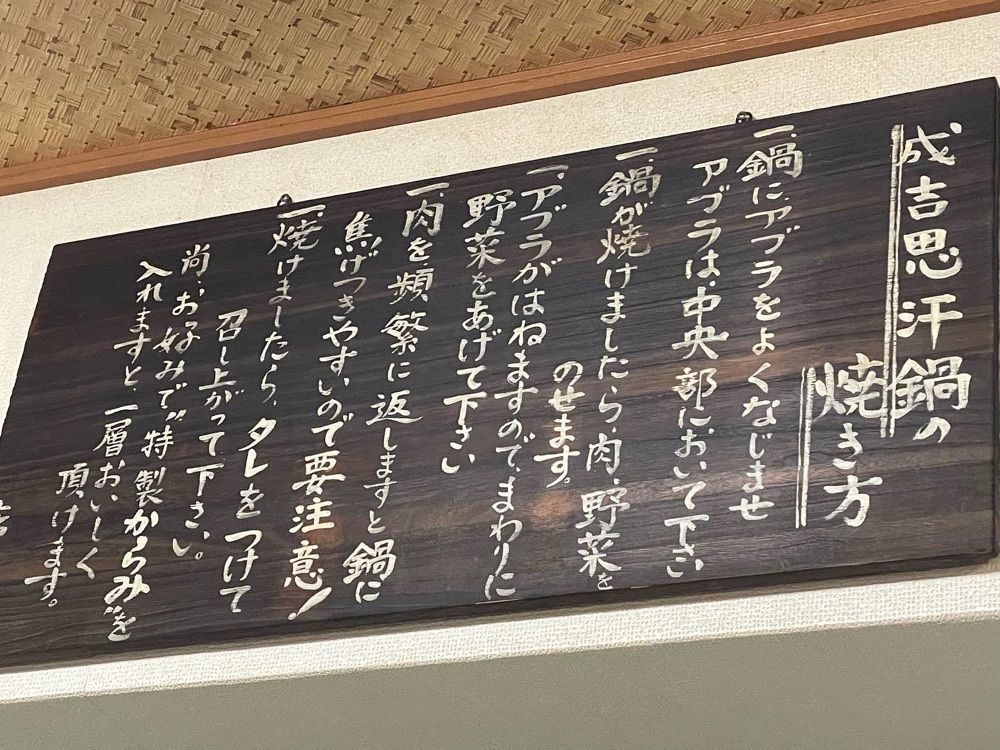 成吉思汗鍋の
焼き方
一、鍋にアブラをよくなじませ
アブラは、中央部において下さい
一、鍋が焼けましたら、肉、野菜を
のせます。
一、アブラがはねますので、まわりに
野菜をあげて下さい
一、肉を、頻繁に返しますと鍋に
焦げつきやすいので要注意!
一、焼けましたら、タレをつけて
召し上がって下さい。
尚、お好みで“特製からみ”を
入れますと一層おいしく
頂けます。